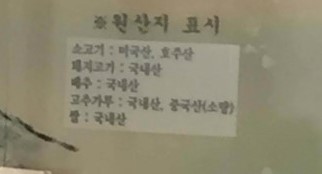 ※ 원산지 표시
소고기 : 미국산, 호주산
돼지고기 : 국내산
배추 : 국내산
고추가루 : 국내산, 중국산(소량)
쌀 : 국내산